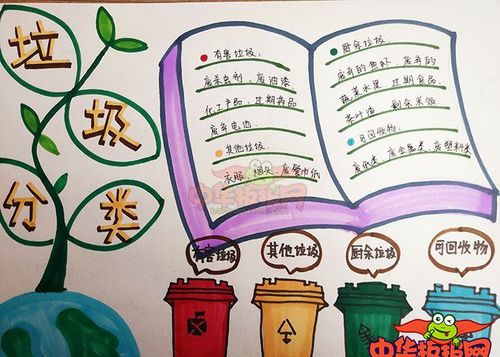 垃
圾
分
类
有害垃圾：
废杀虫剂、废油漆
化工产品、过期药品
废弃电池
其他垃圾：
衣服、烟头、废餐巾纸
厨余垃圾：
废弃的鱼虾、废弃的
蔬菜水果、过期食品、
茶叶渣 剩余米饭
可回收物：
废纸类、废金属类、废塑料类
有害垃圾
其他垃圾
厨余垃圾
可回收物
中华挂报网